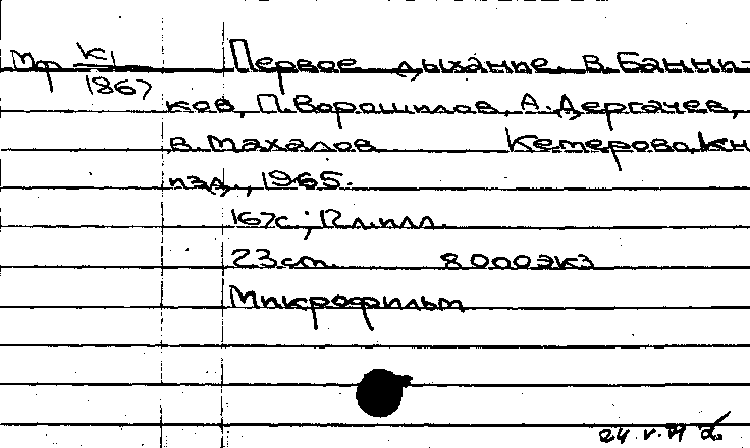 Мф К1
1867
Первое дыхание. В. Банни-
ков, П. Ворошилов, А. Дергачев,
В. Махалов Кемерово, Кн
изд., 1965.
167с; 12 л. илл.
23 см. 8000 экз
Микрофильм
24.V.79